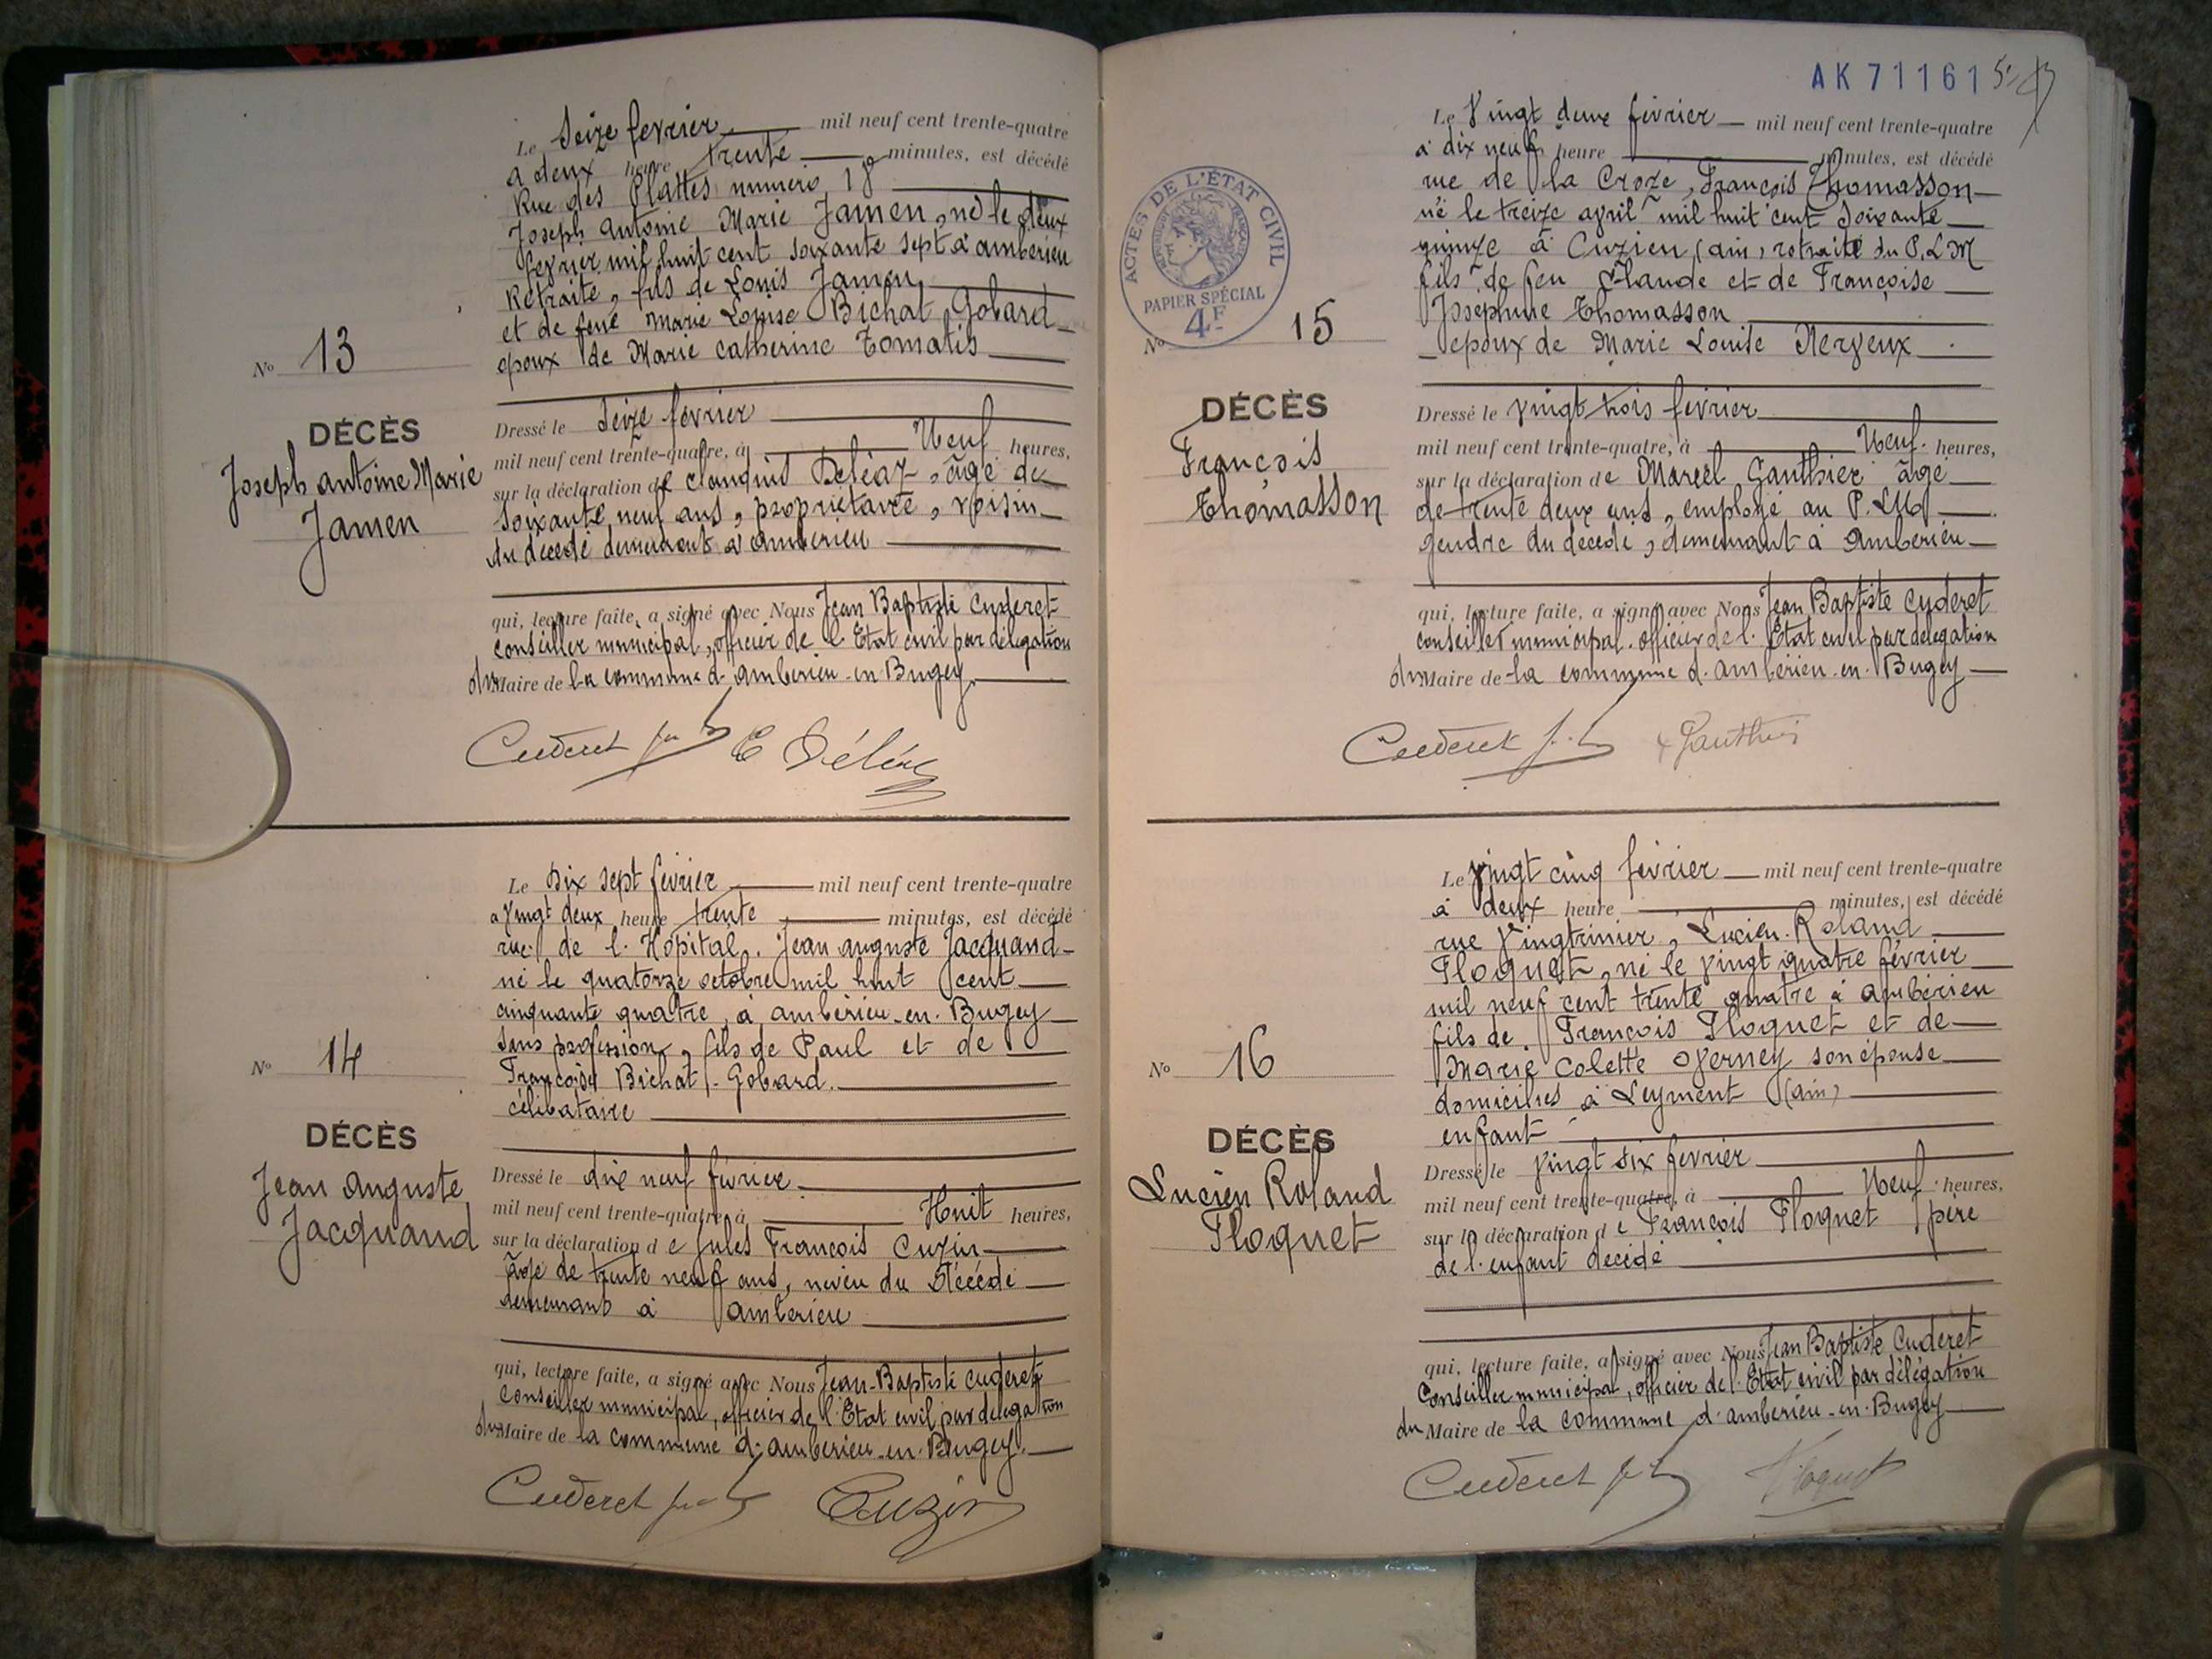 Le Seize fevrier mil neuf cent trente-quatre
a deux heure trente minutes, est décédé
Rue des Plattes numero 18
Joseph Antoine Marie Jamen, né le deux
fevrier mil huit cent soixante sept à ambérieu
Retraité, fils de Louis Jamen
et de feue Marie Louise Bichat Gobard
epoux de Marie Catherine Tomatis
No 13
DÉCÈS
Joseph Antoine Marie
Jamen
Dressé le Seize fevrier
mil neuf cent trente-quatre, à Neuf heures,
sur la déclaration de Claudius Deléaz, âgé de
soixante neuf ans, propriétaire, voisin
du décédé demeurant à ambérieu
qui, lecture faite, a signé avec Nous Jean Baptiste Cuderet
conseiller municipal, officier de l'Etat civil par délégation
du Maire de la commune d'ambérieu-en Bugey
Cuderet
Le Dix sept fevrier mil neuf cent trente-quatre
a vingt deux heure trente minutes, est décédé
rue de l'Hopital. Jean auguste Jacquand
né le quatorze octobre mil huit cent
cinquante quatre, à ambérieu-en-Bugey
Sans profession, fils de Paul et de
Françoise Bichat-Gobard.
célibataire
No 14
DÉCÈS
Jean Auguste
Jacquand
Dressé le dix neuf février
mil neuf cent trente-quatre, à Huit heures,
sur la déclaration de Jules François Cuzin
âgé de trente neuf ans, neveu du Décédé
demeurant à ambérieu
qui, lecture faite, a signé avec Nous Jean-Baptiste Cuderet
Conseiller municipal, officier de l'Etat civil par délégation
du Maire de la commune d'ambérieu-en-Bugey.
Cuderet Cuzin
AK 71161
Le Vingt deux février mil neuf cent trente-quatre
à dix neuf heure minutes, est décédé
rue de la Croze, François Thomasson
né le treize avril mil huit cent soixante
quinze à Cuzieu, (ain, retraité du P.L.M
fils de feu Claude et de Françoise
Josephine Thomasson
epoux de Marie Louise Nerveux
ACTES DE L'ÉTAT CIVIL
PAPIER SPÉCIAL
4F
No 15
DÉCÈS
François
Thomasson
Dressé le vingt trois février
mil neuf cent trente-quatre, à Neuf heures,
sur la déclaration de Marcel Gauthier âgé
de trente deux ans, employé au P.L.M
gendre du décédé, demeurant à Ambérieu
qui, lecture faite, a signé avec Nous Jean Baptiste Cuderet
conseiller municipal. officier de l'Etat civil par delegation
du Maire de la commune d'ambérieu-en-Bugey
Cuderet Gauthier
Le vingt cinq février mil neuf cent trente-quatre
à deux heure minutes, est décédé
rue Vingtrinier, Lucien-Roland
Floquet, né le vingt quatre février
mil neuf cent trente quatre à ambérieu
fils de François Floquet et de
Marie Colette Verney son épouse
domiciliés à Leyment (ain)
enfant
No 16
DÉCÈS
Lucien Roland
Floquet
Dressé le vingt six fevrier
mil neuf cent trente-quatre, à Neuf heures,
sur la déclaration de François Floquet père
de l'enfant décédé
qui, lecture faite, a signé avec Nous Jean Baptiste Cuderet
Conseiller municipal, officier de l'Etat civil par délégation
du Maire de la commune d'ambérieu-en-Bugey
Cuderet Floquet